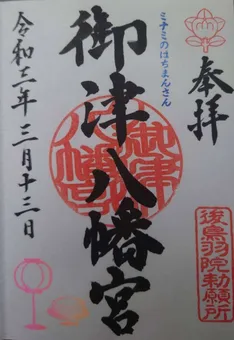 奉拝
ミナミのはちまんさん
御津八幡宮
御津
八幡
後鳥羽院勅願所
令和二年三月十三日